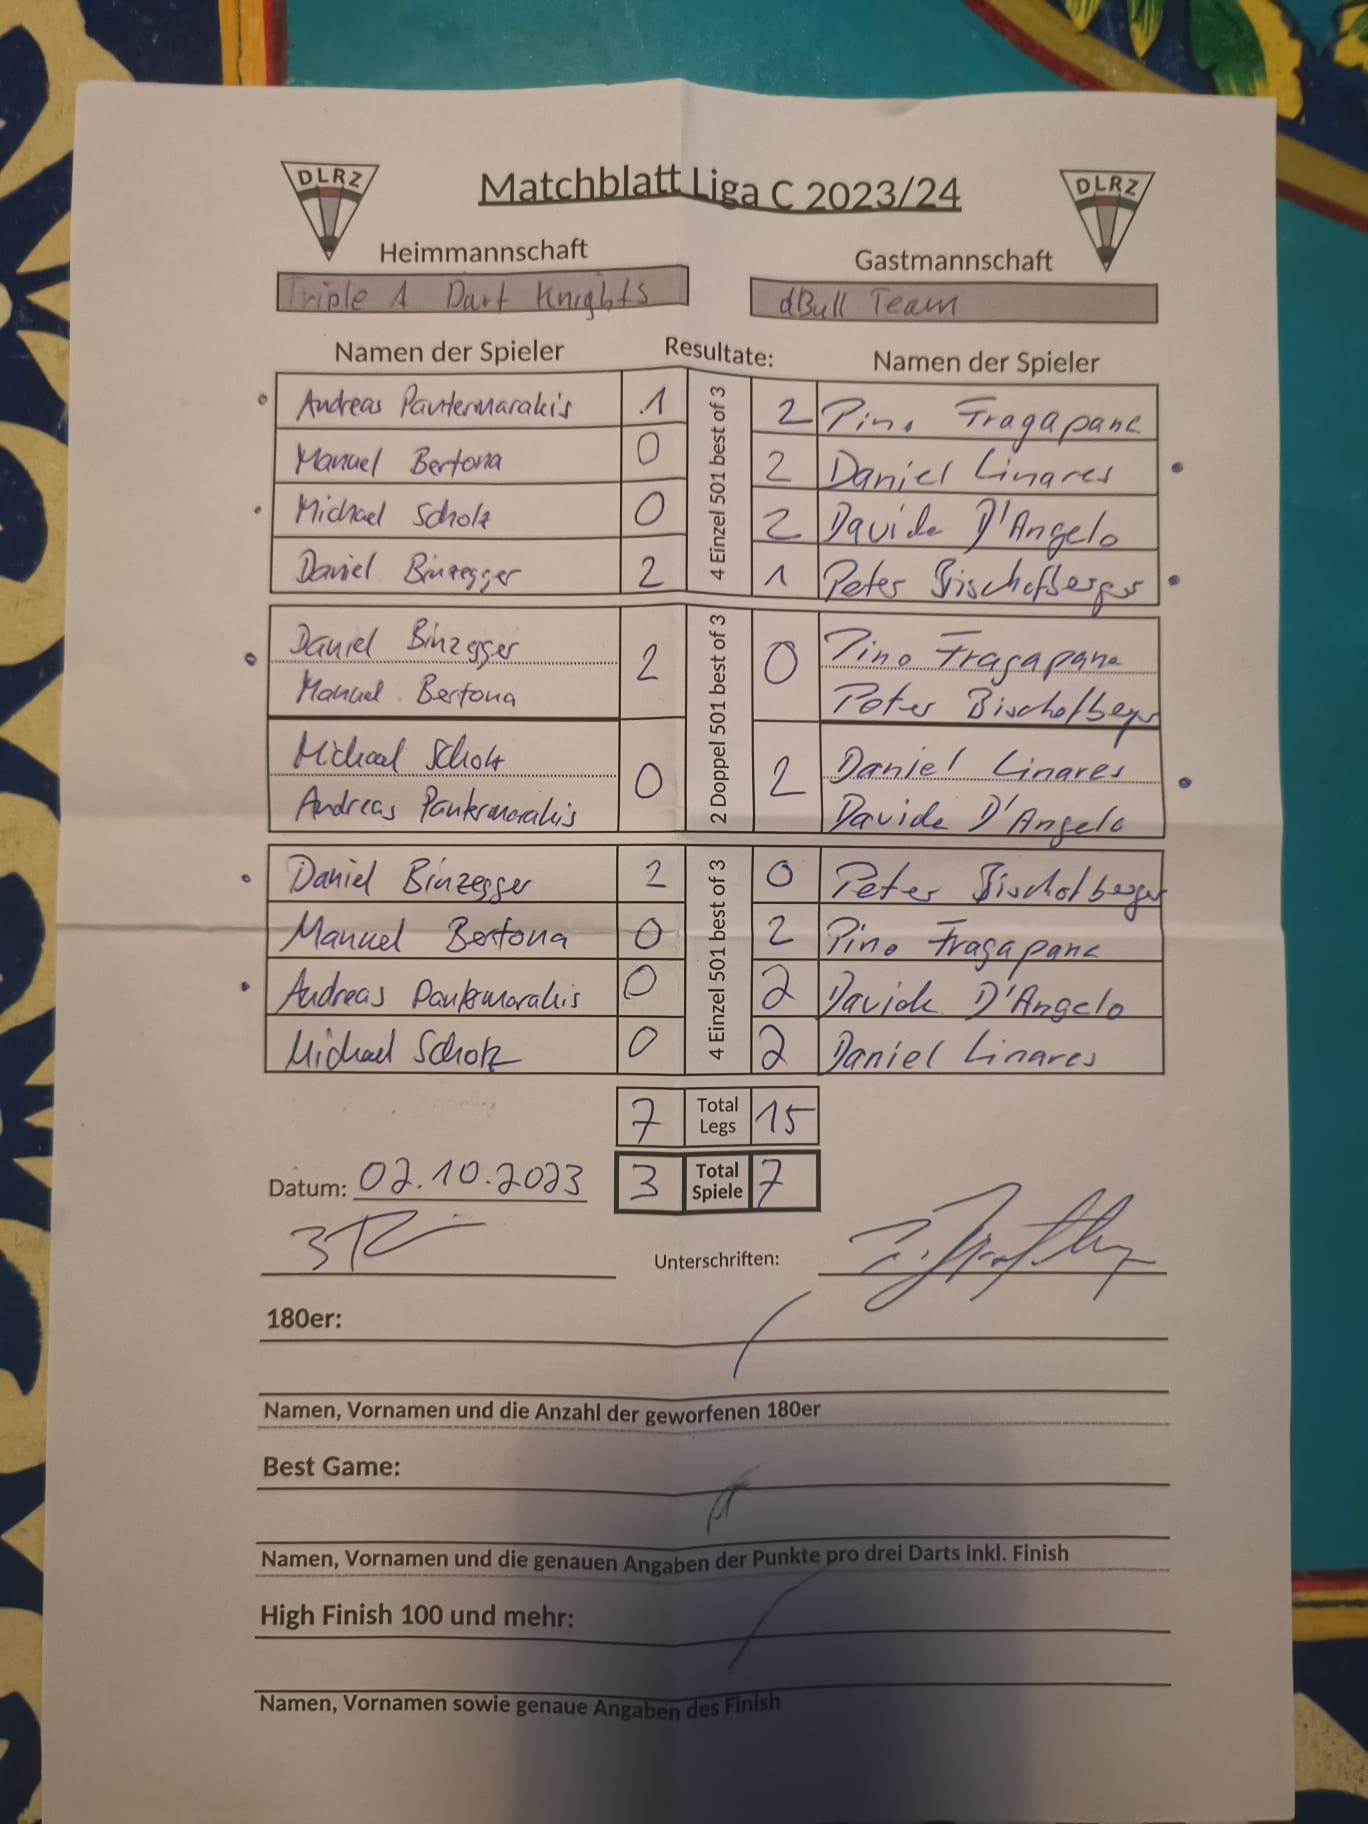 DLRZ Matchblatt Liga C 2023/24 DLRZ
Heimmannschaft Gastmannschaft
Triple 1 Dart Knights dBull Team
Namen der Spieler Resultate: Namen der Spieler
Andreas Pantermarakis 1 2 Pino Fragapane
Manuel Bertona 0 2 Daniel Linares
Michael Scholz 0 2 Davide D'Angelo
Daniel Binzegger 2 1 Peter Bischofberger
4 Einzel 501 best of 3
Daniel Binzegger 2 0 Pino Fragapane
Manuel Bertona Peter Bischofberger
Michael Scholz 0 2 Daniel Linares
Andreas Pantermarakis Davide D'Angelo
2 Doppel 501 best of 3
Daniel Binzegger 2 0 Peter Bischofberger
Manuel Bertona 0 2 Pino Fragapane
Andreas Pantermarakis 0 2 Davide D'Angelo
Michael Scholz 0 2 Daniel Linares
4 Einzel 501 best of 3
7 Total Legs 15
Datum: 02.10.2023 3 Total Spiele 7
Unterschriften:
180er:
Namen, Vornamen und die Anzahl der geworfenen 180er
Best Game:
Namen, Vornamen und die genauen Angaben der Punkte pro drei Darts inkl. Finish
High Finish 100 und mehr:
Namen, Vornamen sowie genaue Angaben des Finish